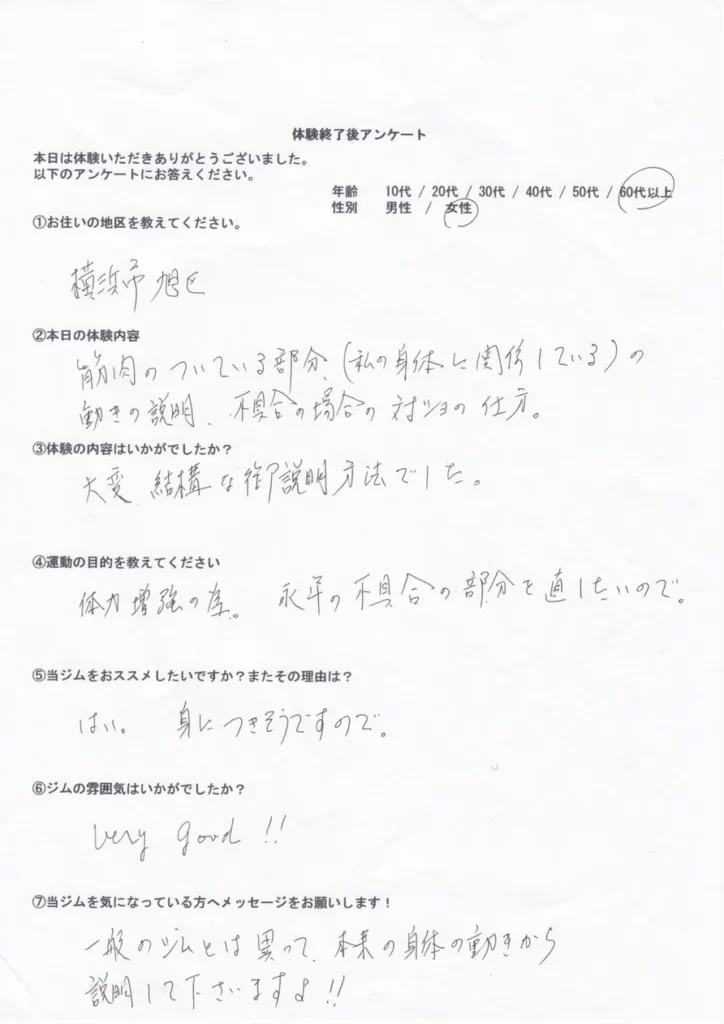 体験終了後アンケート
本日は体験いただきありがとうございました。
以下のアンケートにお答えください。
年齢 10代 / 20代 / 30代 / 40代 / 50代 / 60代以上
性別 男性 / 女性
①お住いの地区を教えてください。
横浜市 旭区
②本日の体験内容
筋肉のついている部分、(私の身体に関係している)の
動きの説明、不具合の場合の対ショの仕方。
③体験の内容はいかがでしたか?
大変 結構な御説明方法でした。
④運動の目的を教えてください
体力増強の為。 永年の不具合の部分を直したいので。
⑤当ジムをおススメしたいですか?またその理由は?
はい。 身につきそうですので。
⑥ジムの雰囲気はいかがでしたか?
very good !!
⑦当ジムを気になっている方へメッセージをお願いします!
一般のジムとは異って、本来の身体の動きから
説明して下さいますよ!!